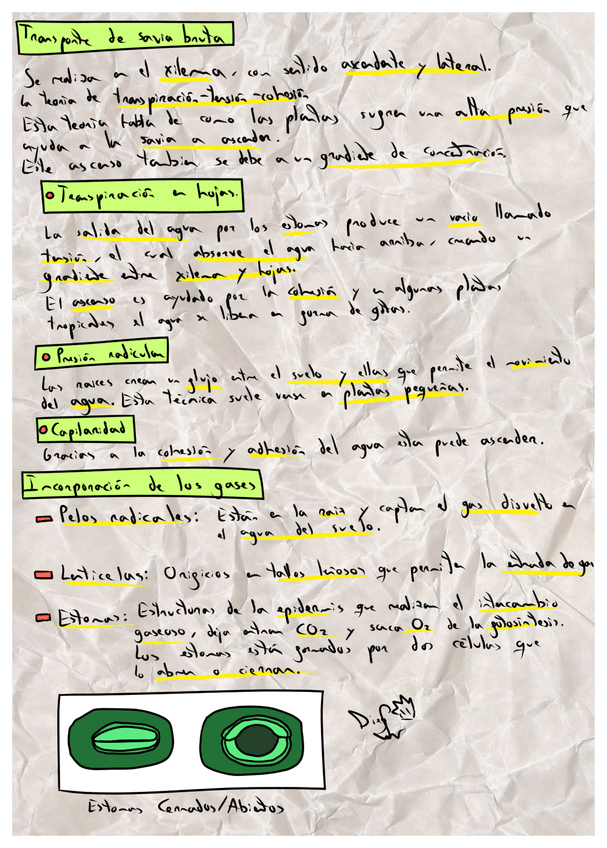 Transporte de savia bruta
Se realiza en el xilema, con sentido ascendente y lateral.
la teoria de transpiración-tensión-cohesión
Esta teoría habla de como las plantas sugren una alta presión que
ayuda a la savia a ascender.
Este ascenso tambien se debe a un gradiente de concentración.
Transpiración en hojas.
La salida del agua por los estomas produce un vacio llamado
tensión, el cual absorve el agua hacia arriba, creando un
gradiente entre xilema y hojas.
El ascenso es ayudado por la cohesión y en algunas plantas
tropicales el agua se libera en gorma de gotas.
Presión radicular
Las raices crean un glujo entre el suelo y ellas que permite el movimiento
del agua. Esta técnica suele verse en plantas pequeñas.
Capilaridad
Gracias a la cohesión y adhesión del agua esta puede ascender.
Incorporación de los gases
Pelos radicales: Están en la raiz y captan el gas disuelto en
el agua del suelo.
Lenticelas: Origicios en tallos leñosos que permiten la entrada de gas
Estomas: Estructuras de la epidermis que realizan el intercambio
gaseoso, deja entrar CO₂ y saca O₂ de la gotosintesis.
Los estomas están gormados por dos células que
lo abren o cierran.
Estomas Cerrados/Abiertos